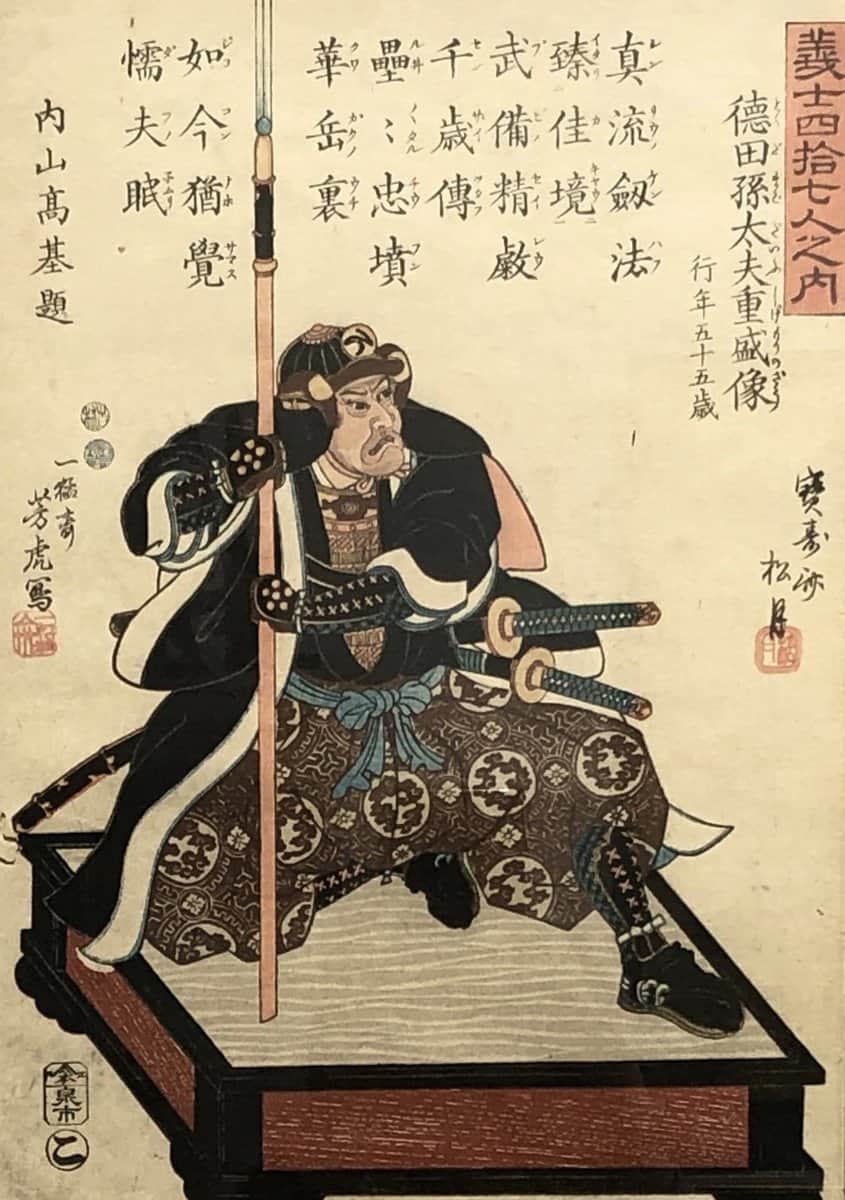 義士四拾七人之内
德田孫太夫重盛像
行年五十五歳
真流劔法
臻佳境
武備精嚴
千歳傳
壘〻忠墳
華岳裏
如今猶覺
懦夫眠
内山髙基題
松月
一猛齋
芳虎寫
泉市